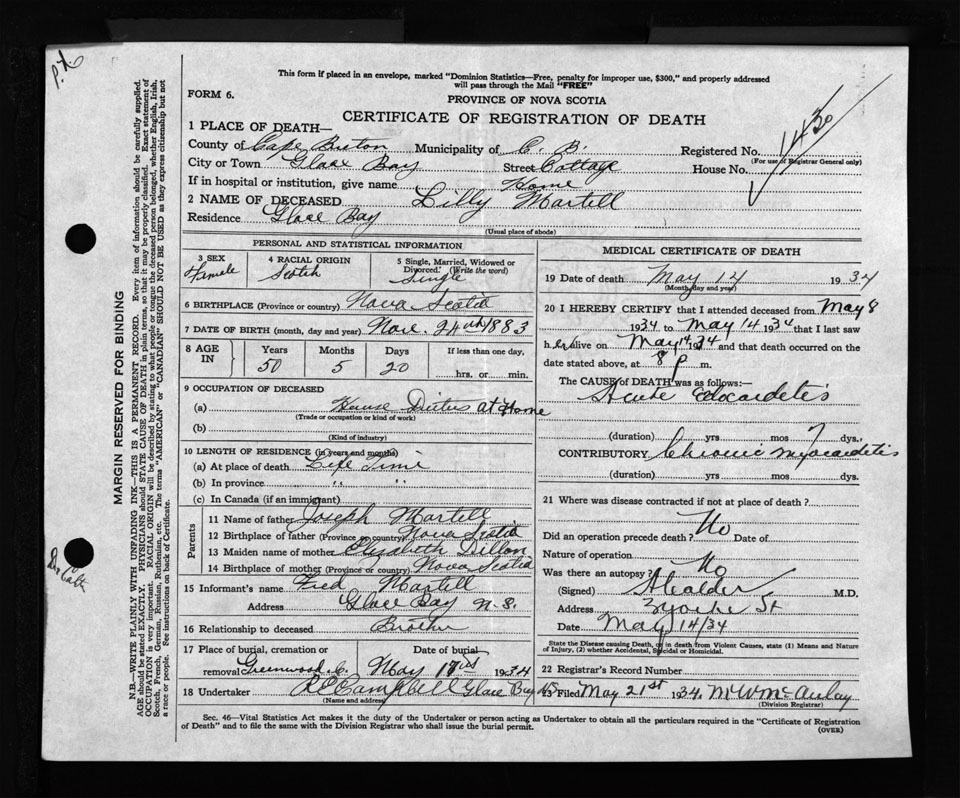 P.X.
This form if placed in an envelope, marked "Dominion Statistics—Free, penalty for improper use, $300," and properly addressed
will pass through the Mail "FREE"
FORM 6.
PROVINCE OF NOVA SCOTIA
CERTIFICATE OF REGISTRATION OF DEATH
1430
1 PLACE OF DEATH—
County of Cape Breton Municipality of C. B. Registered No.
(For use of Registrar General only)
City or Town Glace Bay Street Cottage House No.
If in hospital or institution, give name Home
2 NAME OF DECEASED Lilly Martell
Residence Glace Bay
(Usual place of abode)
PERSONAL AND STATISTICAL INFORMATION
3 SEX Female
4 RACIAL ORIGIN Scotch
5 Single, Married, Widowed or Divorced. (Write the word) Single
6 BIRTHPLACE (Province or country) Nova Scotia
7 DATE OF BIRTH (month, day and year) Nov. 24th 1883
8 AGE IN
Years Months Days If less than one day,
50 5 20 hrs. or min.
9 OCCUPATION OF DECEASED
(a) House Duties at Home
(Trade or occupation or kind of work)
(b)
(Kind of industry)
10 LENGTH OF RESIDENCE (in years and months)
(a) At place of death Life Time
(b) In province " "
(c) In Canada (if an immigrant)
Parents
11 Name of father Joseph Martell
12 Birthplace of father (Province or country) Nova Scotia
13 Maiden name of mother Elizabeth Dillon
14 Birthplace of mother (Province or country) Nova Scotia
15 Informant's name Fred Martell
Address Glace Bay N.S.
16 Relationship to deceased Brother
17 Place of burial, cremation or removal Greenwood C. Date of burial May 17th 1934
18 Undertaker Campbell Glace Bay NS
(Name and address)
MEDICAL CERTIFICATE OF DEATH
19 Date of death May 14 1934
(Month, day and year)
20 I HEREBY CERTIFY that I attended deceased from May 8
1934 to May 14 1934 that I last saw
her alive on May 14 1934 and that death occurred on the
date stated above, at 8 p m.
The CAUSE of DEATH was as follows:—
Acute
(duration) yrs mos 7 dys.
CONTRIBUTORY Chronic Myocardetis
(duration) yrs mos dys.
21 Where was disease contracted if not at place of death?
Did an operation precede death? No Date of
Nature of operation
Was there an autopsy? No
(Signed) M.D.
Address St
Date May 14/34
State the Disease causing Death, or in death from Violent Causes, state (1) Means and Nature
of Injury, (2) whether Accidental, Suicidal or Homicidal.
22 Registrar's Record Number
23 Filed May 21st 1934 McAulay
(Division Registrar)
Sec. 46—Vital Statistics Act makes it the duty of the Undertaker or person acting as Undertaker to obtain all the particulars required in the "Certificate of Registration
of Death" and to file the same with the Division Registrar who shall issue the burial permit.
(OVER)
MARGIN RESERVED FOR BINDING
N.B.—WRITE PLAINLY WITH UNFADING INK—THIS IS A PERMANENT RECORD. Every item of information should be carefully supplied.
AGE should be stated EXACTLY. PHYSICIANS should STATE CAUSE OF DEATH in plain terms, so that it may be properly classified. Exact statement of
OCCUPATION is very important. RACIAL ORIGIN will be described by stating to what people or tongue the deceased person belonged, whether English, Irish,
Scotch, French, German, Russian, Ruthenian, etc. The terms "AMERICAN" or "CANADIAN" SHOULD NOT BE USED as they express citizenship but not
a race or people. See instructions on back of Certificate.